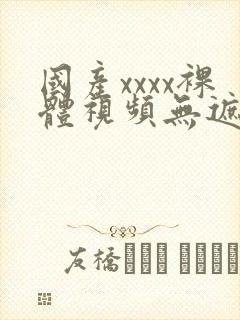 國產xxxx裸
體視頻無遮
友橋